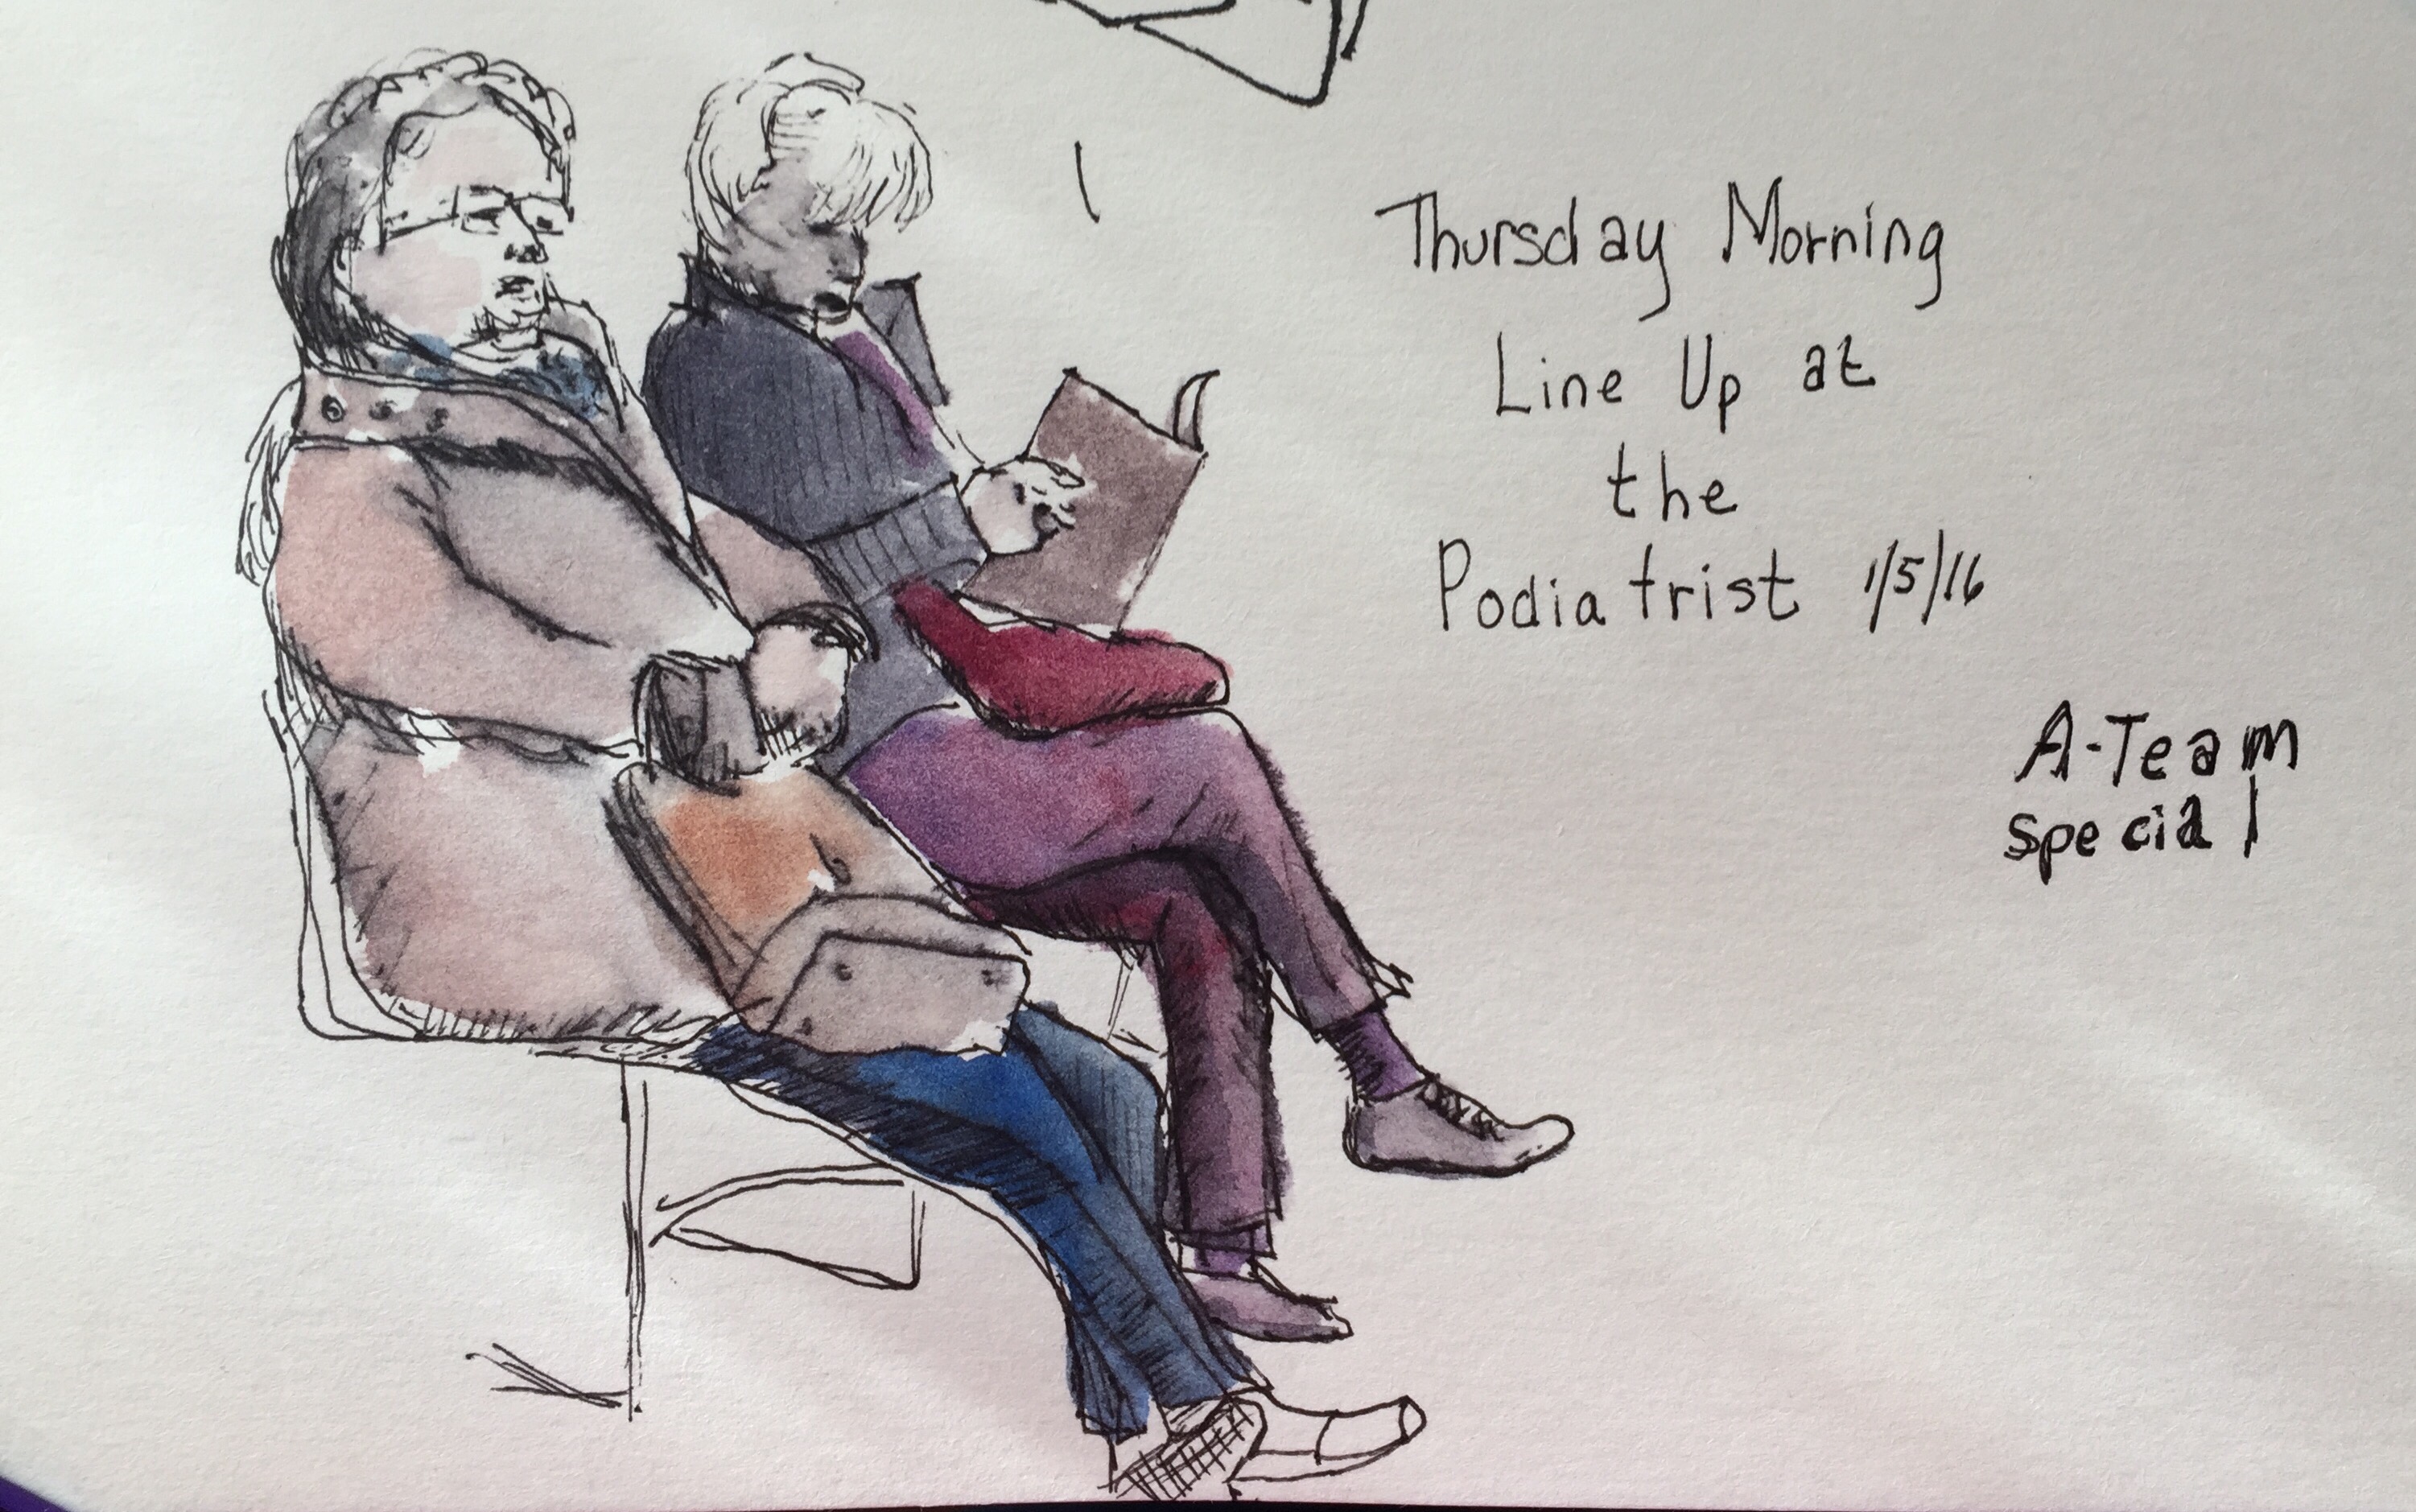 Thursday Morning
Line Up at
the
Podiatrist 1/5/16
A-Team
special